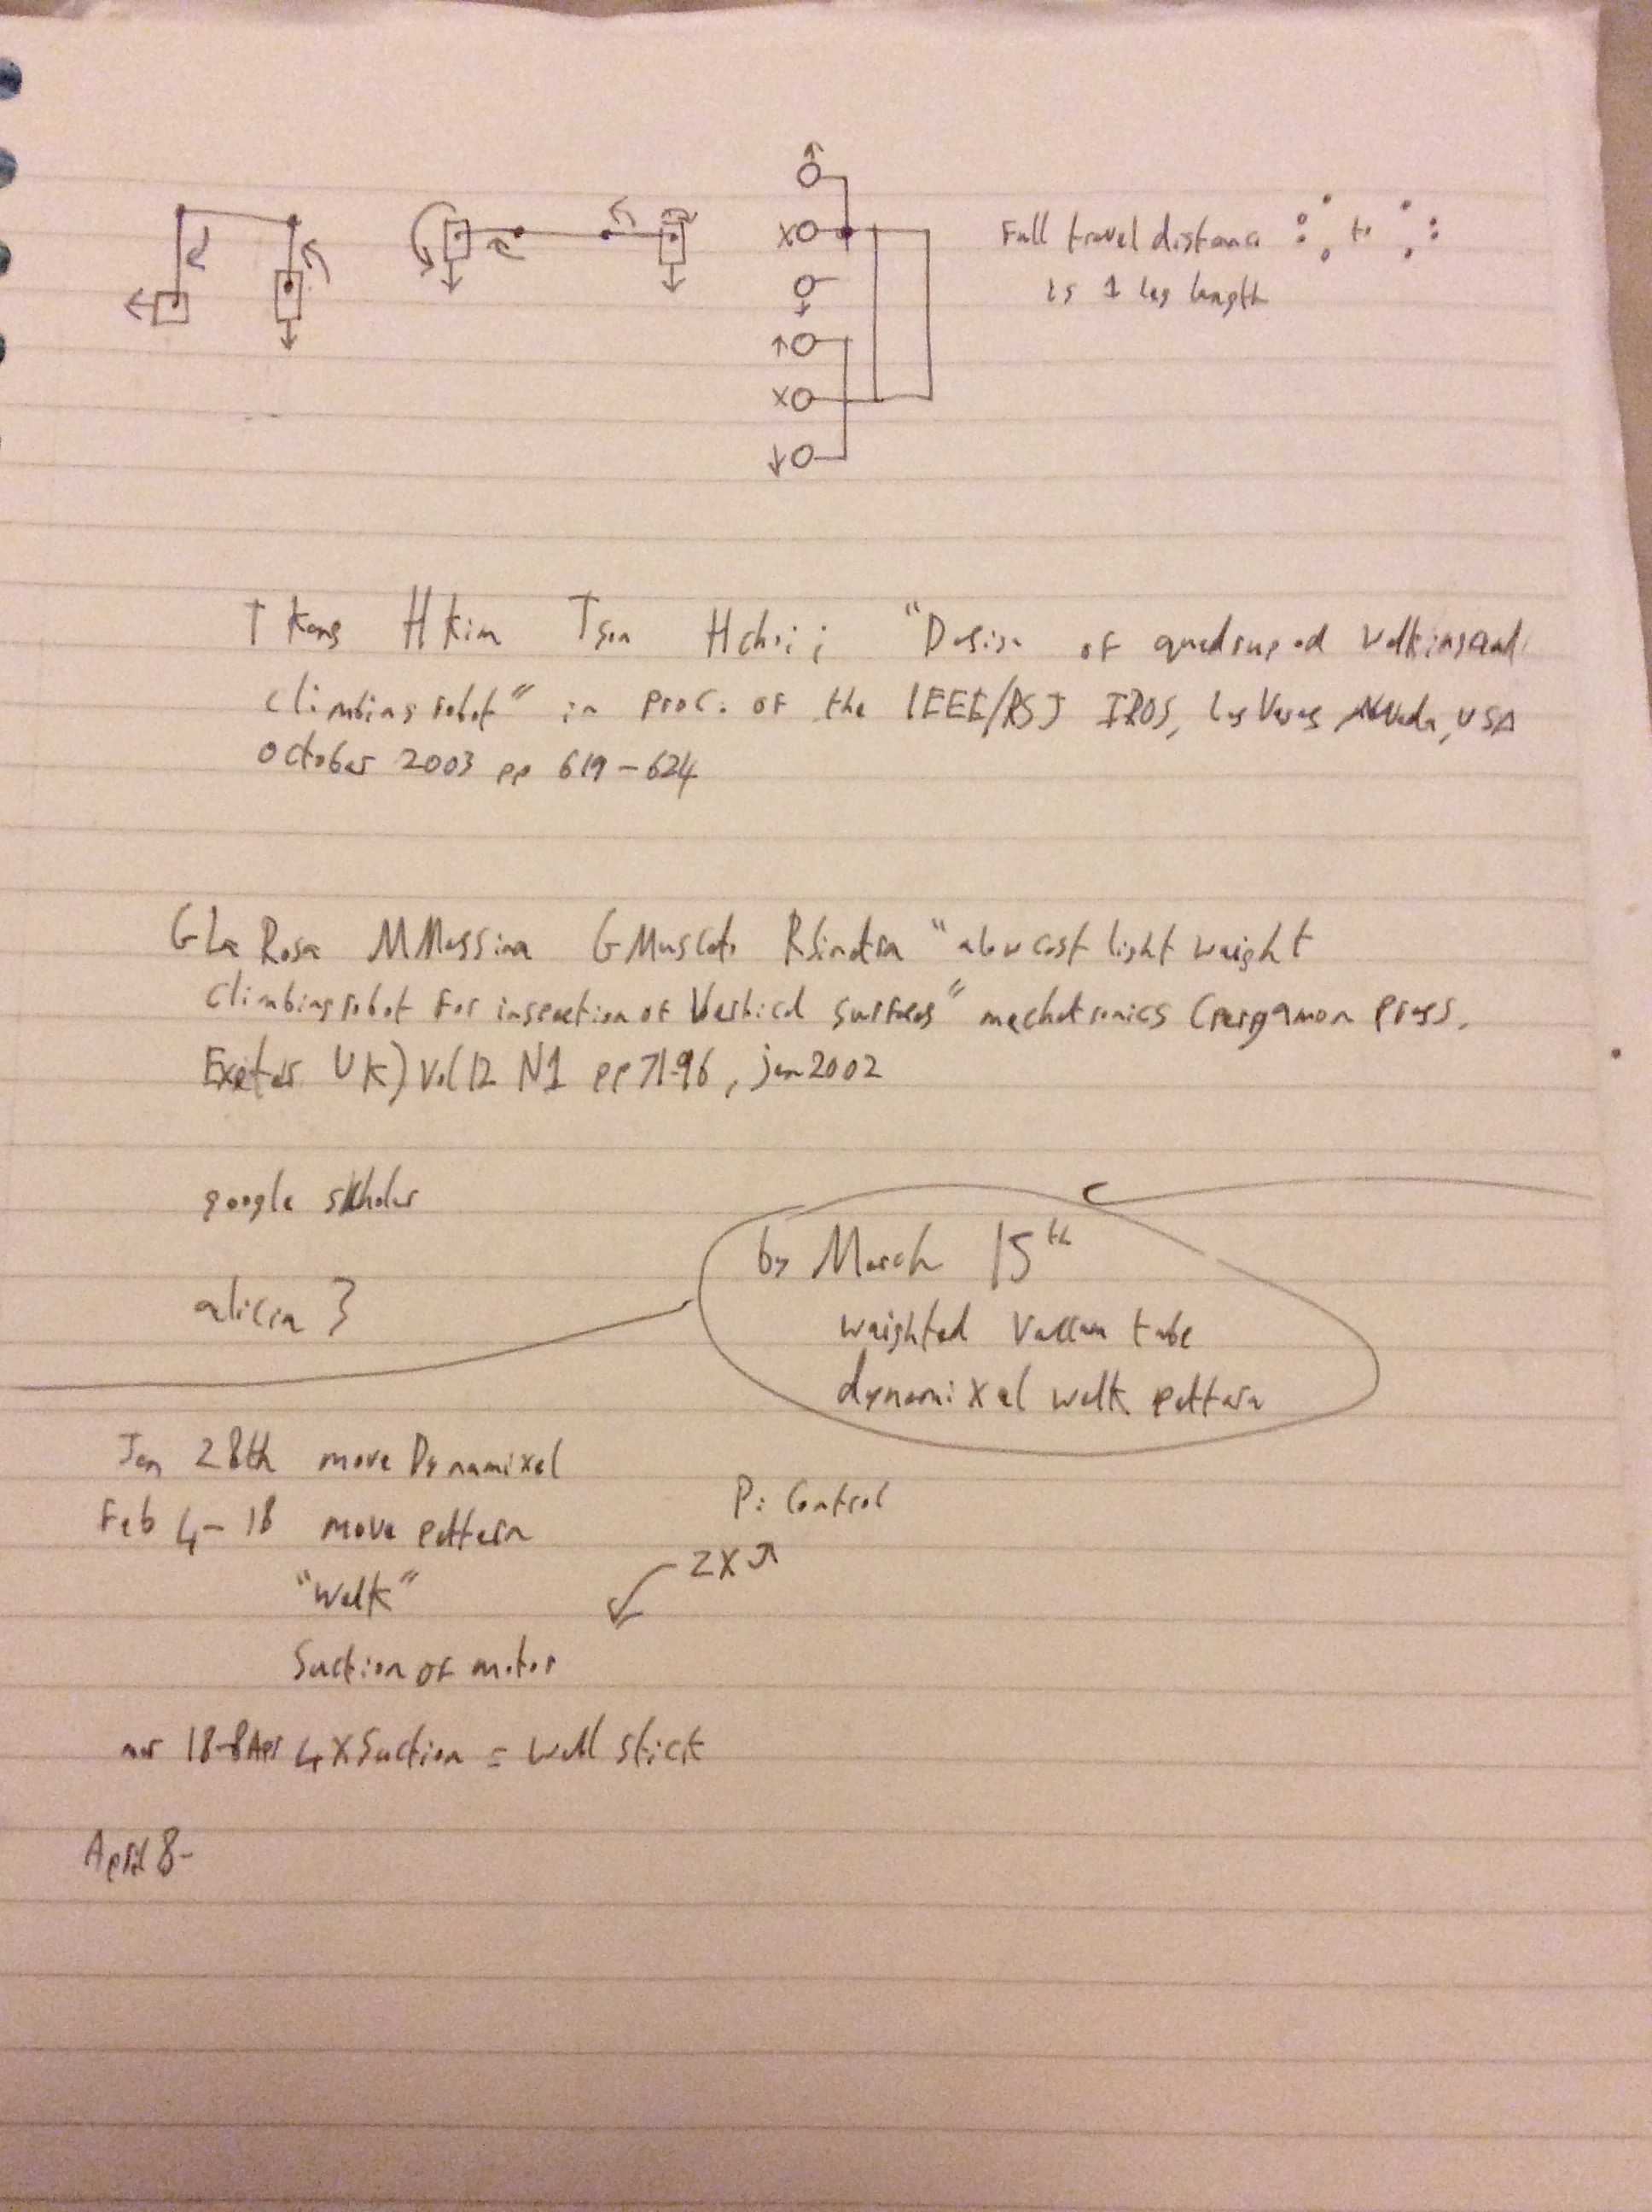 Full travel distance to
is 1 leg length
X
X
T Kang H Kim T Son H Choi; "Design of quadruped walking and
climbing robot" in proc. of the IEEE/RSJ IROS, Las Vegas Nevada, USA
October 2003 pp 619-624
G La Rosa M Messina G Muscato R Sinatra "a low cost light weight
climbing robot for inspection of Vertical surfaces" mechatronics (pergamon press,
Exeter UK) vol 12 N1 pp 71-96, jan 2002
google scholar
alicia 3
by March 15th
weighted Vaccum tube
dynamixel walk pattern
Jan 28th move Dynamixel
Feb 4-18 move pattern
Pi Control
"Walk"
2X
Suction of motor
mar 18-8Apr 4X Suction = wall stick
April 8-